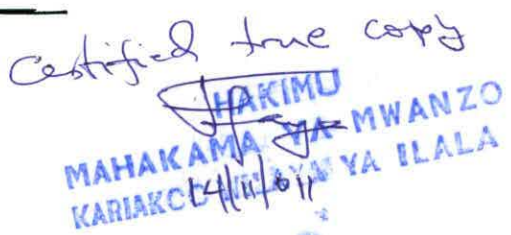 Certified true copy
HAKIMU
MAHAKAMA YA MWANZO
KARIAKOO WILAYA YA ILALA
14/11/011